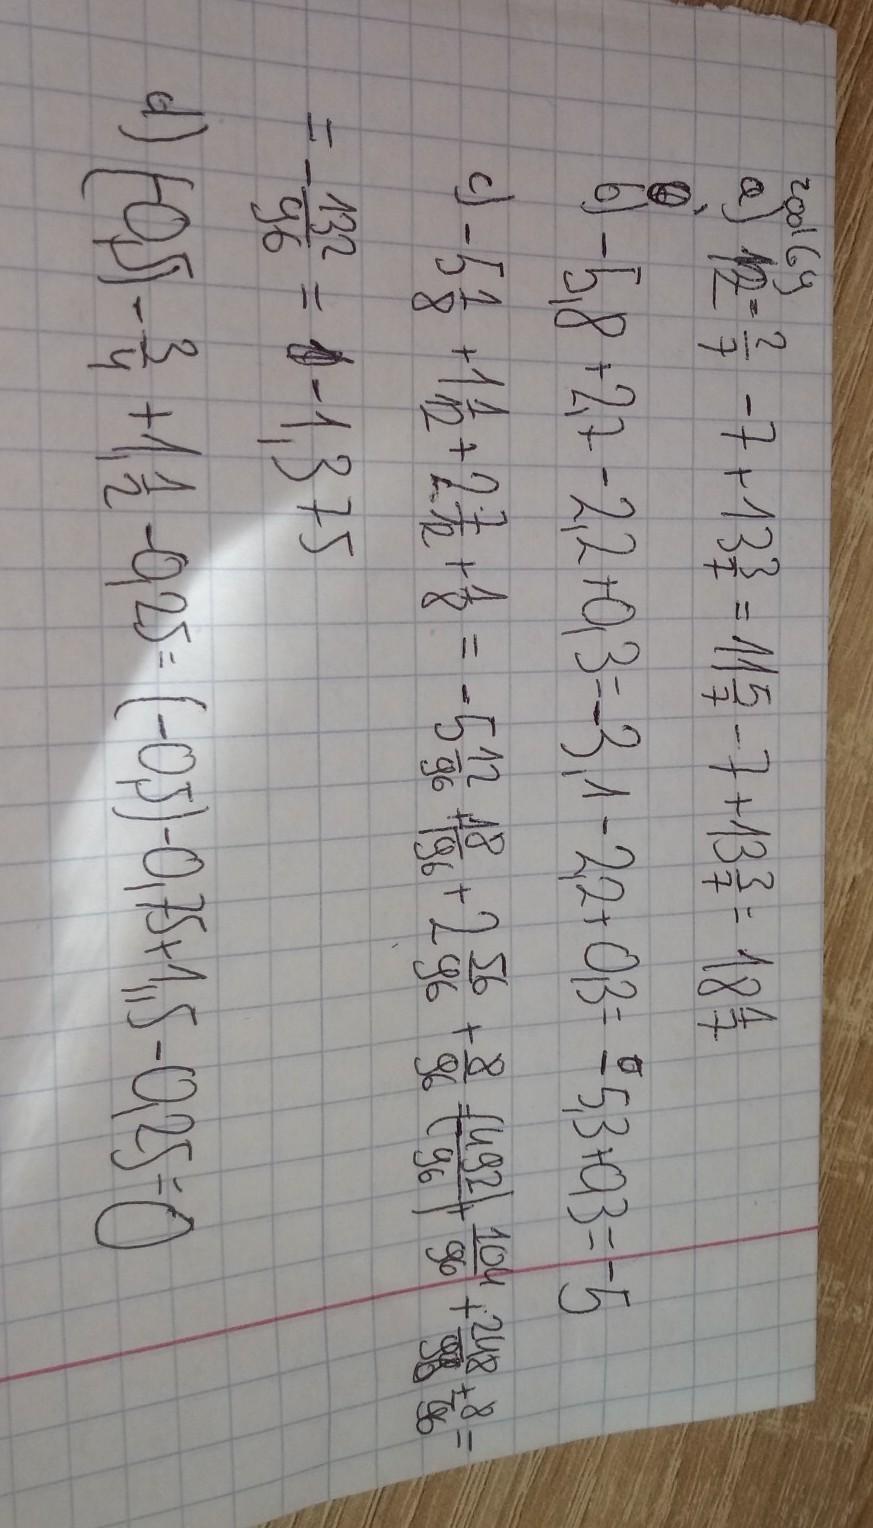 zad 69
a) 12 - 2/7 - 7 + 13 3/7 = 11 5/7 - 7 + 13 3/7 = 18 1/7
b) - 5,8 + 2,7 - 2,2 + 0,3 = -3,1 - 2,2 + 0,3 = -5,3 + 0,3 = -5
c) - 5 1/8 + 1 1/12 + 2 7/12 + 1/8 = - 5 12/96 + 1 8/96 + 2 56/96 + 8/96 = (- 492/96) + 104/96 + 248/96 + 8/96 =
= - 132/96 = - 1,375
d) (-0,5) - 3/4 + 1 1/2 - 0,25 = (-0,5) - 0,75 + 1,5 - 0,25 = 0